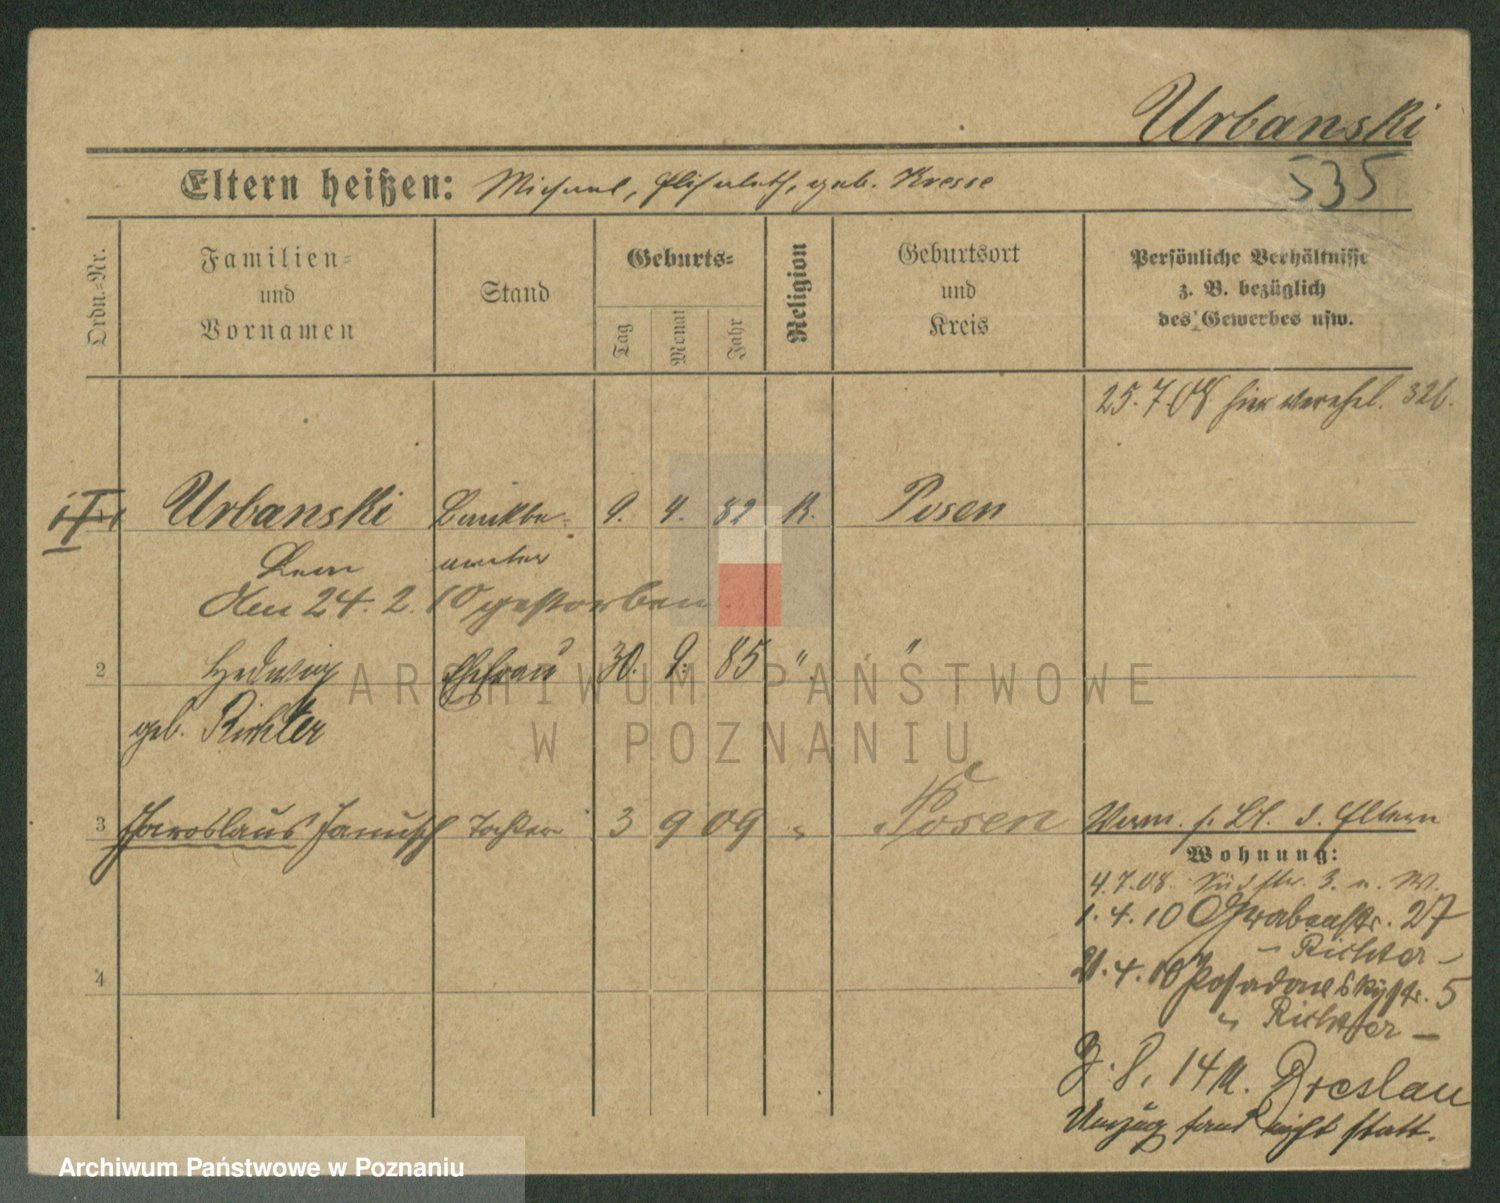 Urbanski
535
Eltern heißen: Michael, Elisabeth, geb. Kresse
Ordn.-Nr.
Familien=
und
Vornamen
Stand
Geburts=
Tag
Monat
Jahr
Religion
Geburtsort
und
Kreis
Persönliche Verhältnisse
z. B. bezüglich
des Gewerbes usw.
25.7.08 hier verehel. 326.
Urbanski Bankbe= 9. 4. 82 K. Posen
Leon amter
den 24. 2. 10 gestorben
2 Hedwig Ehefrau 30. 9. 85 " "
geb. Richter
3 Jaroslaus Janusch 3 9 09 " Posen
Verm. s. Bl. d. Eltern
Wohnung:
4.7.08. Südstr. 3. u. W.
1.4.10 Grabenstr. 27
- Richter -
21.4.10 Posadowskystr. 5
- Richter -
14 n. Breslau
Umzug fand nicht statt.
4
ARCHIWUM PAŃSTWOWE
W POZNANIU
Archiwum Państwowe w Poznaniu